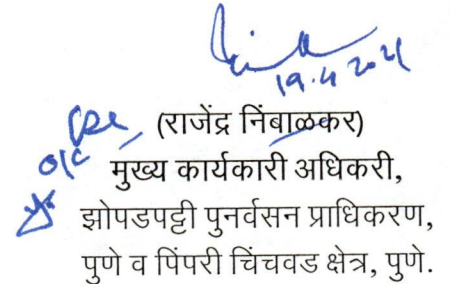 19.4.2021
(राजेंद्र निंबाळकर)
o/c
मुख्य कार्यकारी अधिकरी,
झोपडपट्टी पुनर्वसन प्राधिकरण,
पुणे व पिंपरी चिंचवड क्षेत्र, पुणे.